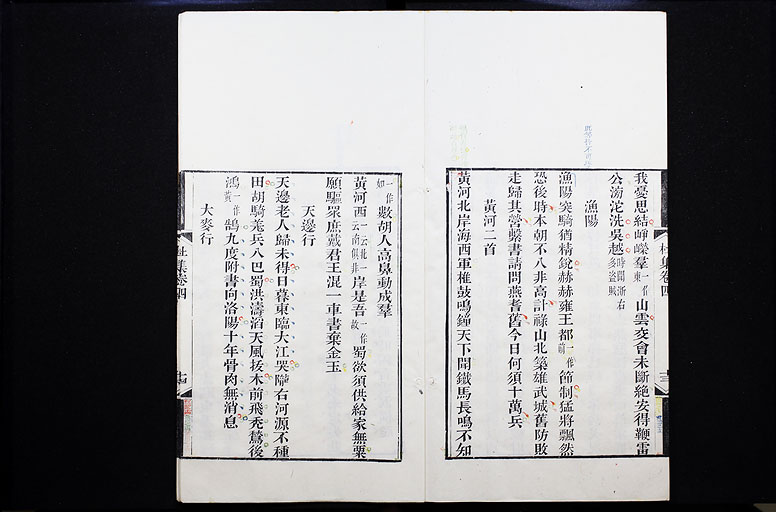 我憂思結崢嶸羣一作東山雲交會未斷絕安得鞭雷
公滂沱洗吳越時聞浙右多盜賊
漁陽
漁陽突騎猶精銳赫赫雍王都一作前節制猛將飄然
恐後時本朝不入非高計祿山北築雄武城舊防敗
走歸其營繫書請問燕耆舊今日何須十萬兵
黃河二首
黃河北岸海西軍椎鼓鳴鐘天下聞鐵馬長鳴不知
一作如數胡人高鼻動成羣
黃河西一云北一云南俱非岸是吾一作故蜀欲須供給家無粟
願驅眾庶戴君王混一車書棄金玉
天邊行
天邊老人歸未得日暮東臨大江哭隴右河源不種
田胡騎羌兵入巴蜀洪濤滔天風拔木前飛禿鶖後
鴻一作黃鵠九度附書向洛陽十年骨肉無消息
大麥行
杜集卷四
杜集卷四